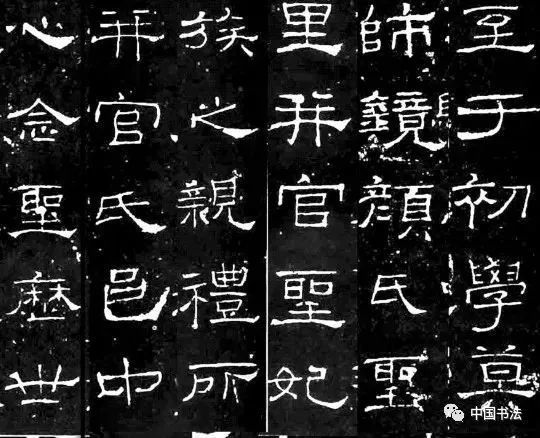 至于初學莫
師鏡顏氏聖
里并官聖妃
族之親禮所
并官氏邑中
心念聖歷世
中国书法